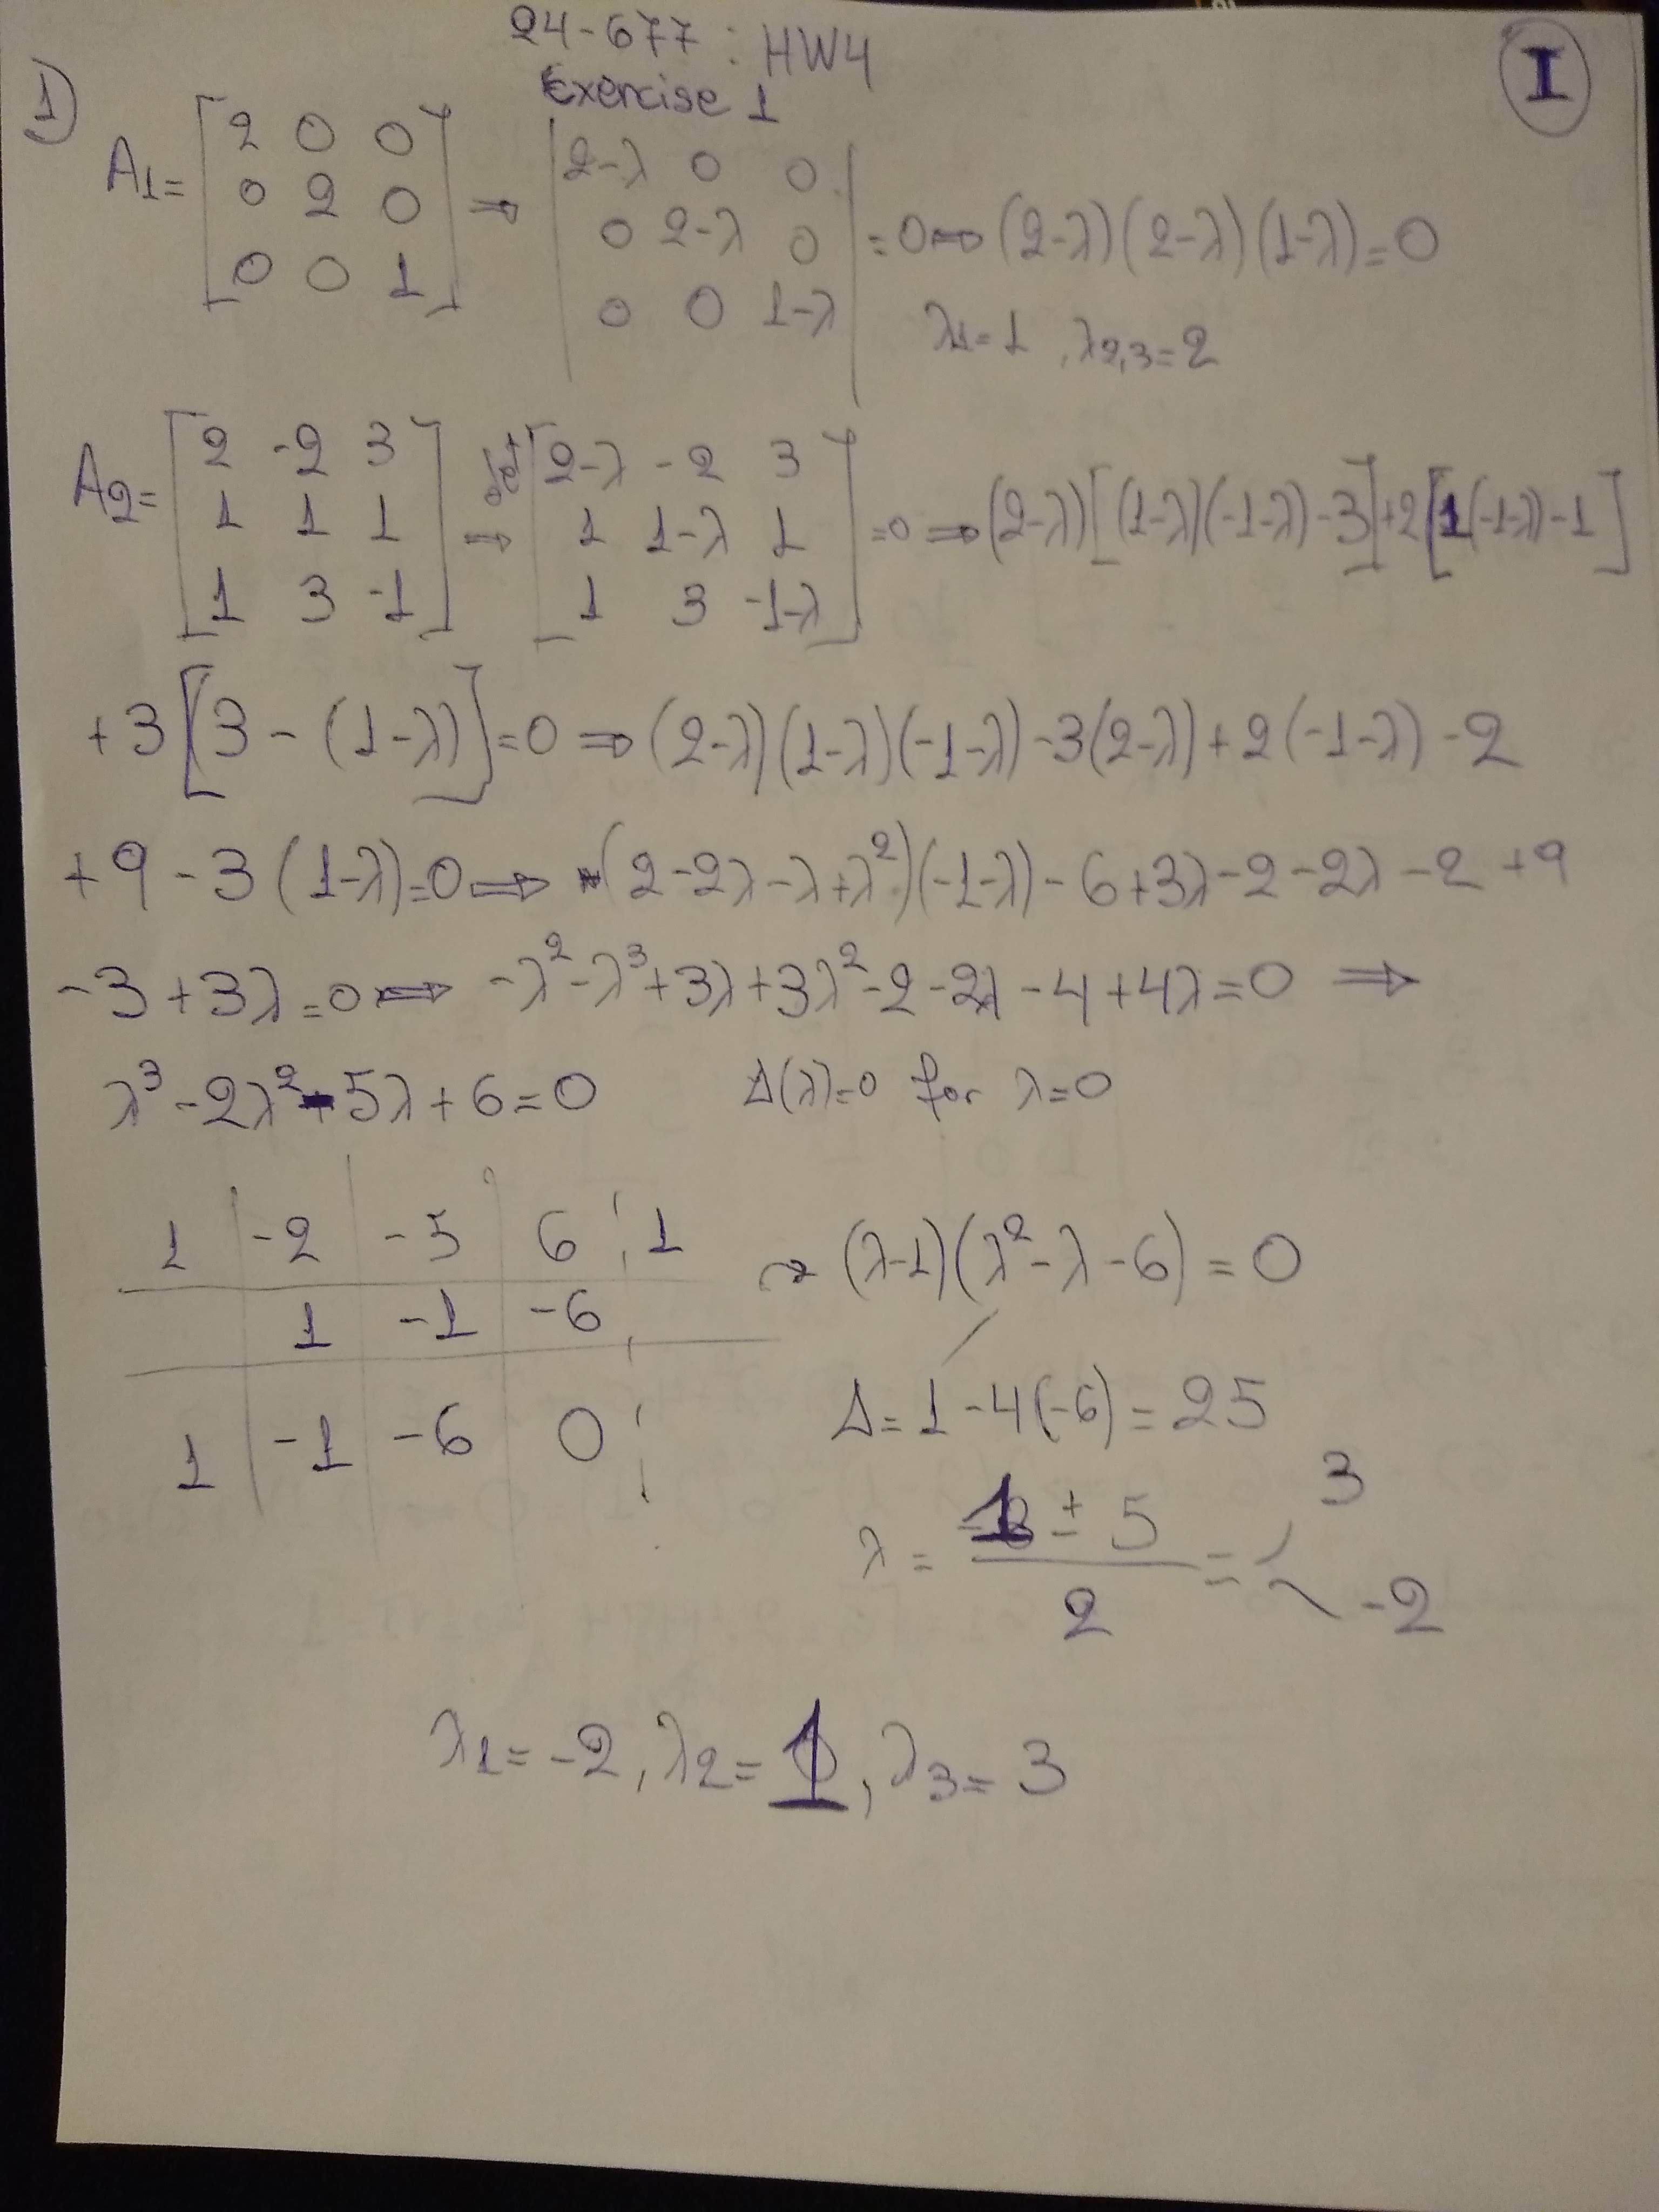 24-677 : HW4
Exercise 1
I
1)
A1= [2 0 0; 0 2 0; 0 0 1] ⇒ |2-λ 0 0; 0 2-λ 0; 0 0 1-λ| =0 ⇒ (2-λ)(2-λ)(1-λ)=0
λ1=1 , λ2,3=2
A2= [2 -2 3; 1 1 1; 1 3 -1] det ⇒ [2-λ -2 3; 1 1-λ 1; 1 3 -1-λ] =0 ⇒ (2-λ)[(1-λ)(-1-λ)-3]+2[1(-1-λ)-1]
+3[3-(1-λ)]=0 ⇒ (2-λ)(1-λ)(-1-λ)-3(2-λ)+2(-1-λ)-2
+9-3(1-λ)=0 ⇒ (2-2λ-λ+λ²)(-1-λ)-6+3λ-2-2λ-2+9
-3+3λ=0 ⇒ -λ²-λ³+3λ+3λ²-2-2λ-4+4λ=0 ⇒
λ³-2λ²-5λ+6=0 Δ(λ)=0 for λ=0
1 | -2 | -5 | 6 | 1
1 -1 -6
1 -1 -6 0
→ (λ-1)(λ²-λ-6)=0
Δ=1-4(-6)=25
λ = (1 ± 5)/2 = 3
-2
λ1=-2, λ2=1, λ3=3